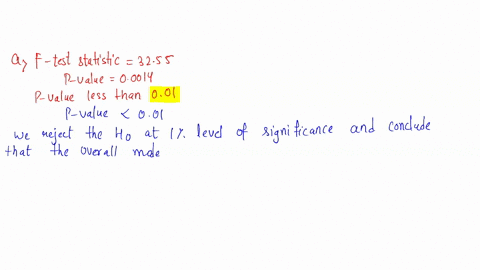 a, F-test statistic = 32.55
P-value = 0.0014
P-value less than 0.01
P-value < 0.01
we reject the H0 at 1% level of significance and conclude
that the overall mode